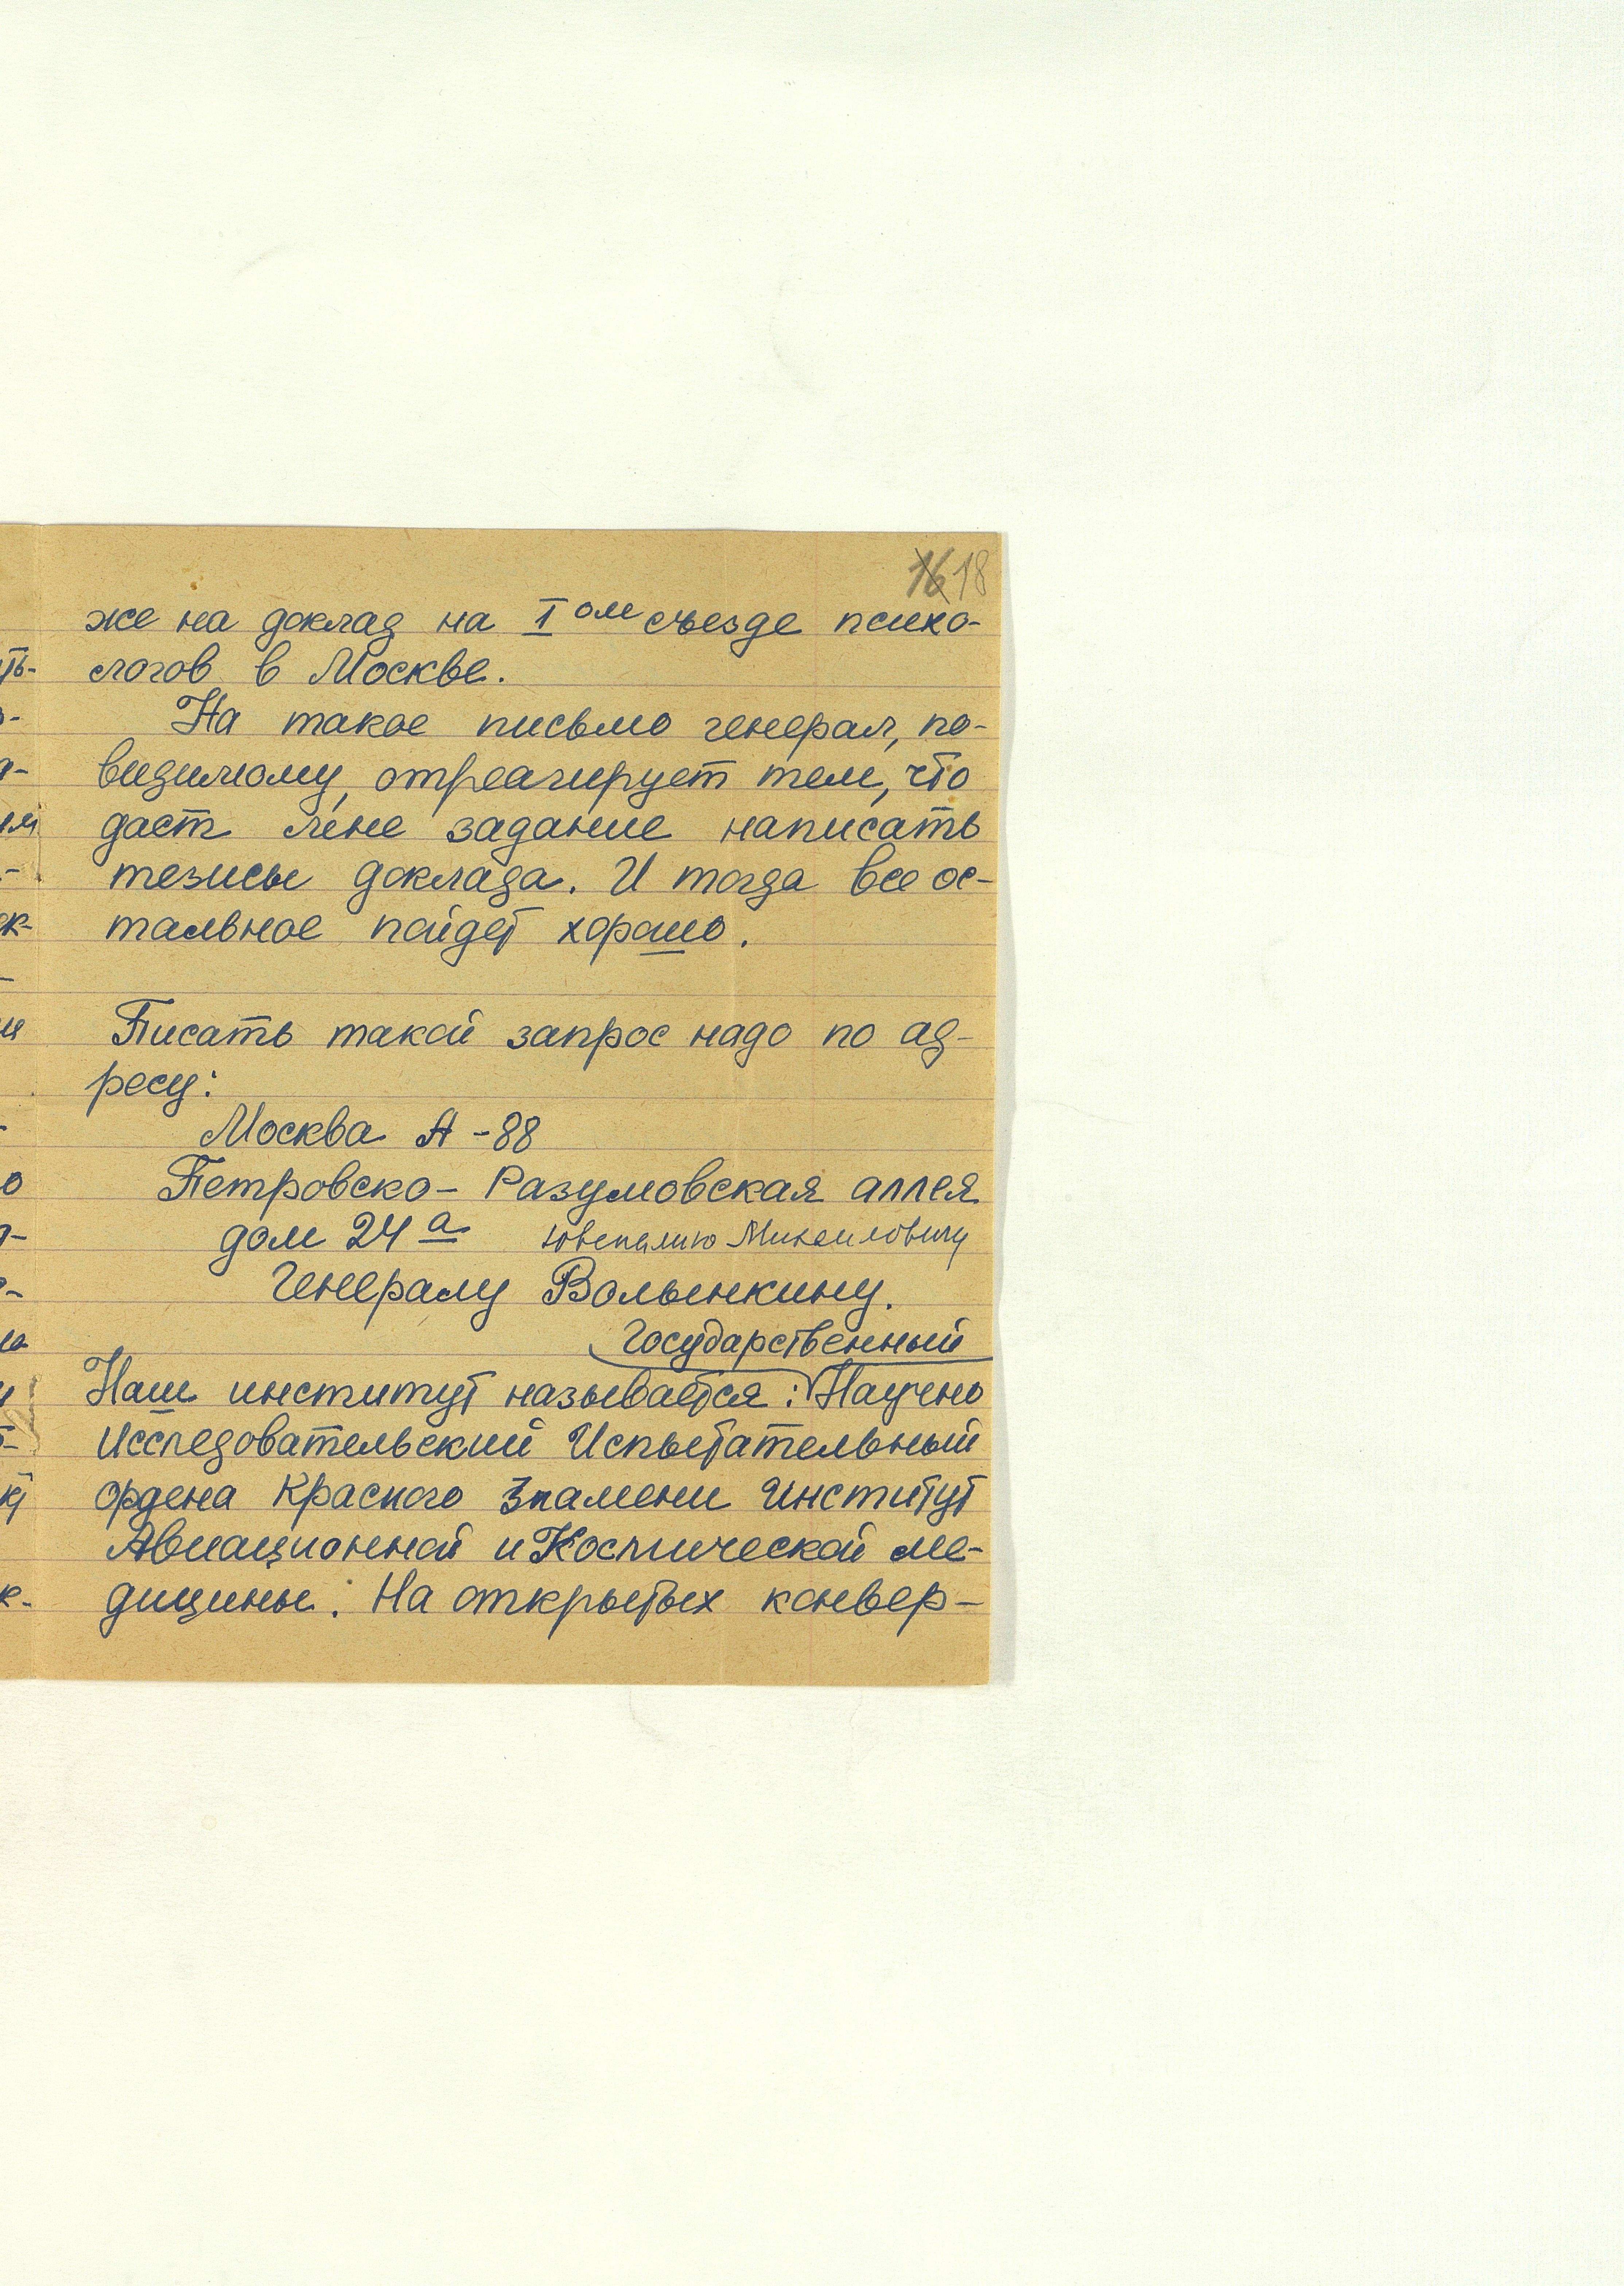 16 18
же на доклад на I ом съезде психо-
логов в Москве.
На такое письмо генерал, по-
видимому, отреагирует тем, что
даст мне задание написать
тезисы доклада. И тогда все ос-
тальное пойдет хорошо.
Писать такой запрос надо по ад-
ресу:
Москва А-88
Петровско-Разумовская аллея
дом 24 а Ювеналию Михайловичу
Генералу Волынкину.
Государственный
Наш институт называется: Научно
Исследовательский Испытательный
ордена Красного Знамени Институт
Авиационной и Космической ме-
дицины. На открытых конвер-